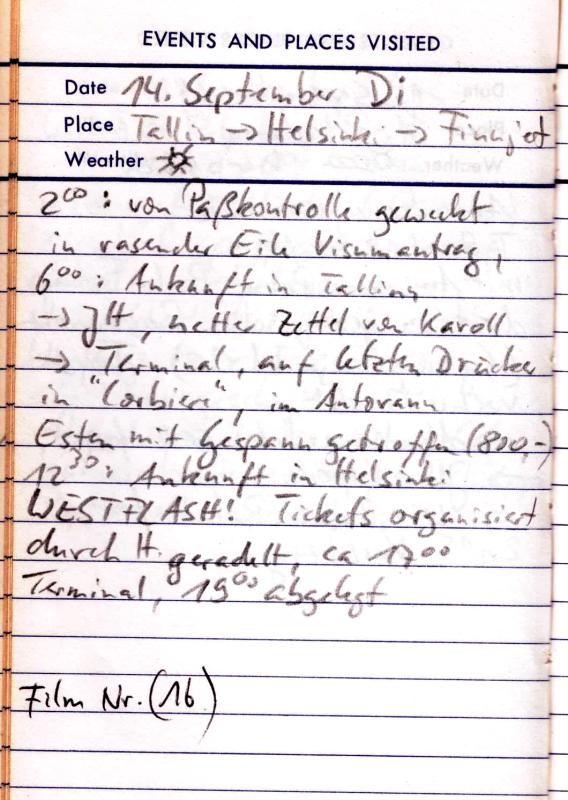 EVENTS AND PLACES VISITED
Date 14. September Di
Place Tallin → Helsinki → Finnjet
Weather
2⁰⁰: von Paßkontrolle geweckt
in rasender Eile Visumantrag,
6⁰⁰: Ankunft in Tallinn
→ JH, netter Zettel von Karoll
→ Terminal, auf letzten Drücker
in "Corbiere", im Autoraum
Esten mit Gespann getroffen (800,-)
12³⁰: Ankunft in Helsinki
WESTFLASH! Tickets organisiert
durch H. geradelt, ca 17⁰⁰
Terminal, 19⁰⁰ abgelegt
Film Nr. (16)